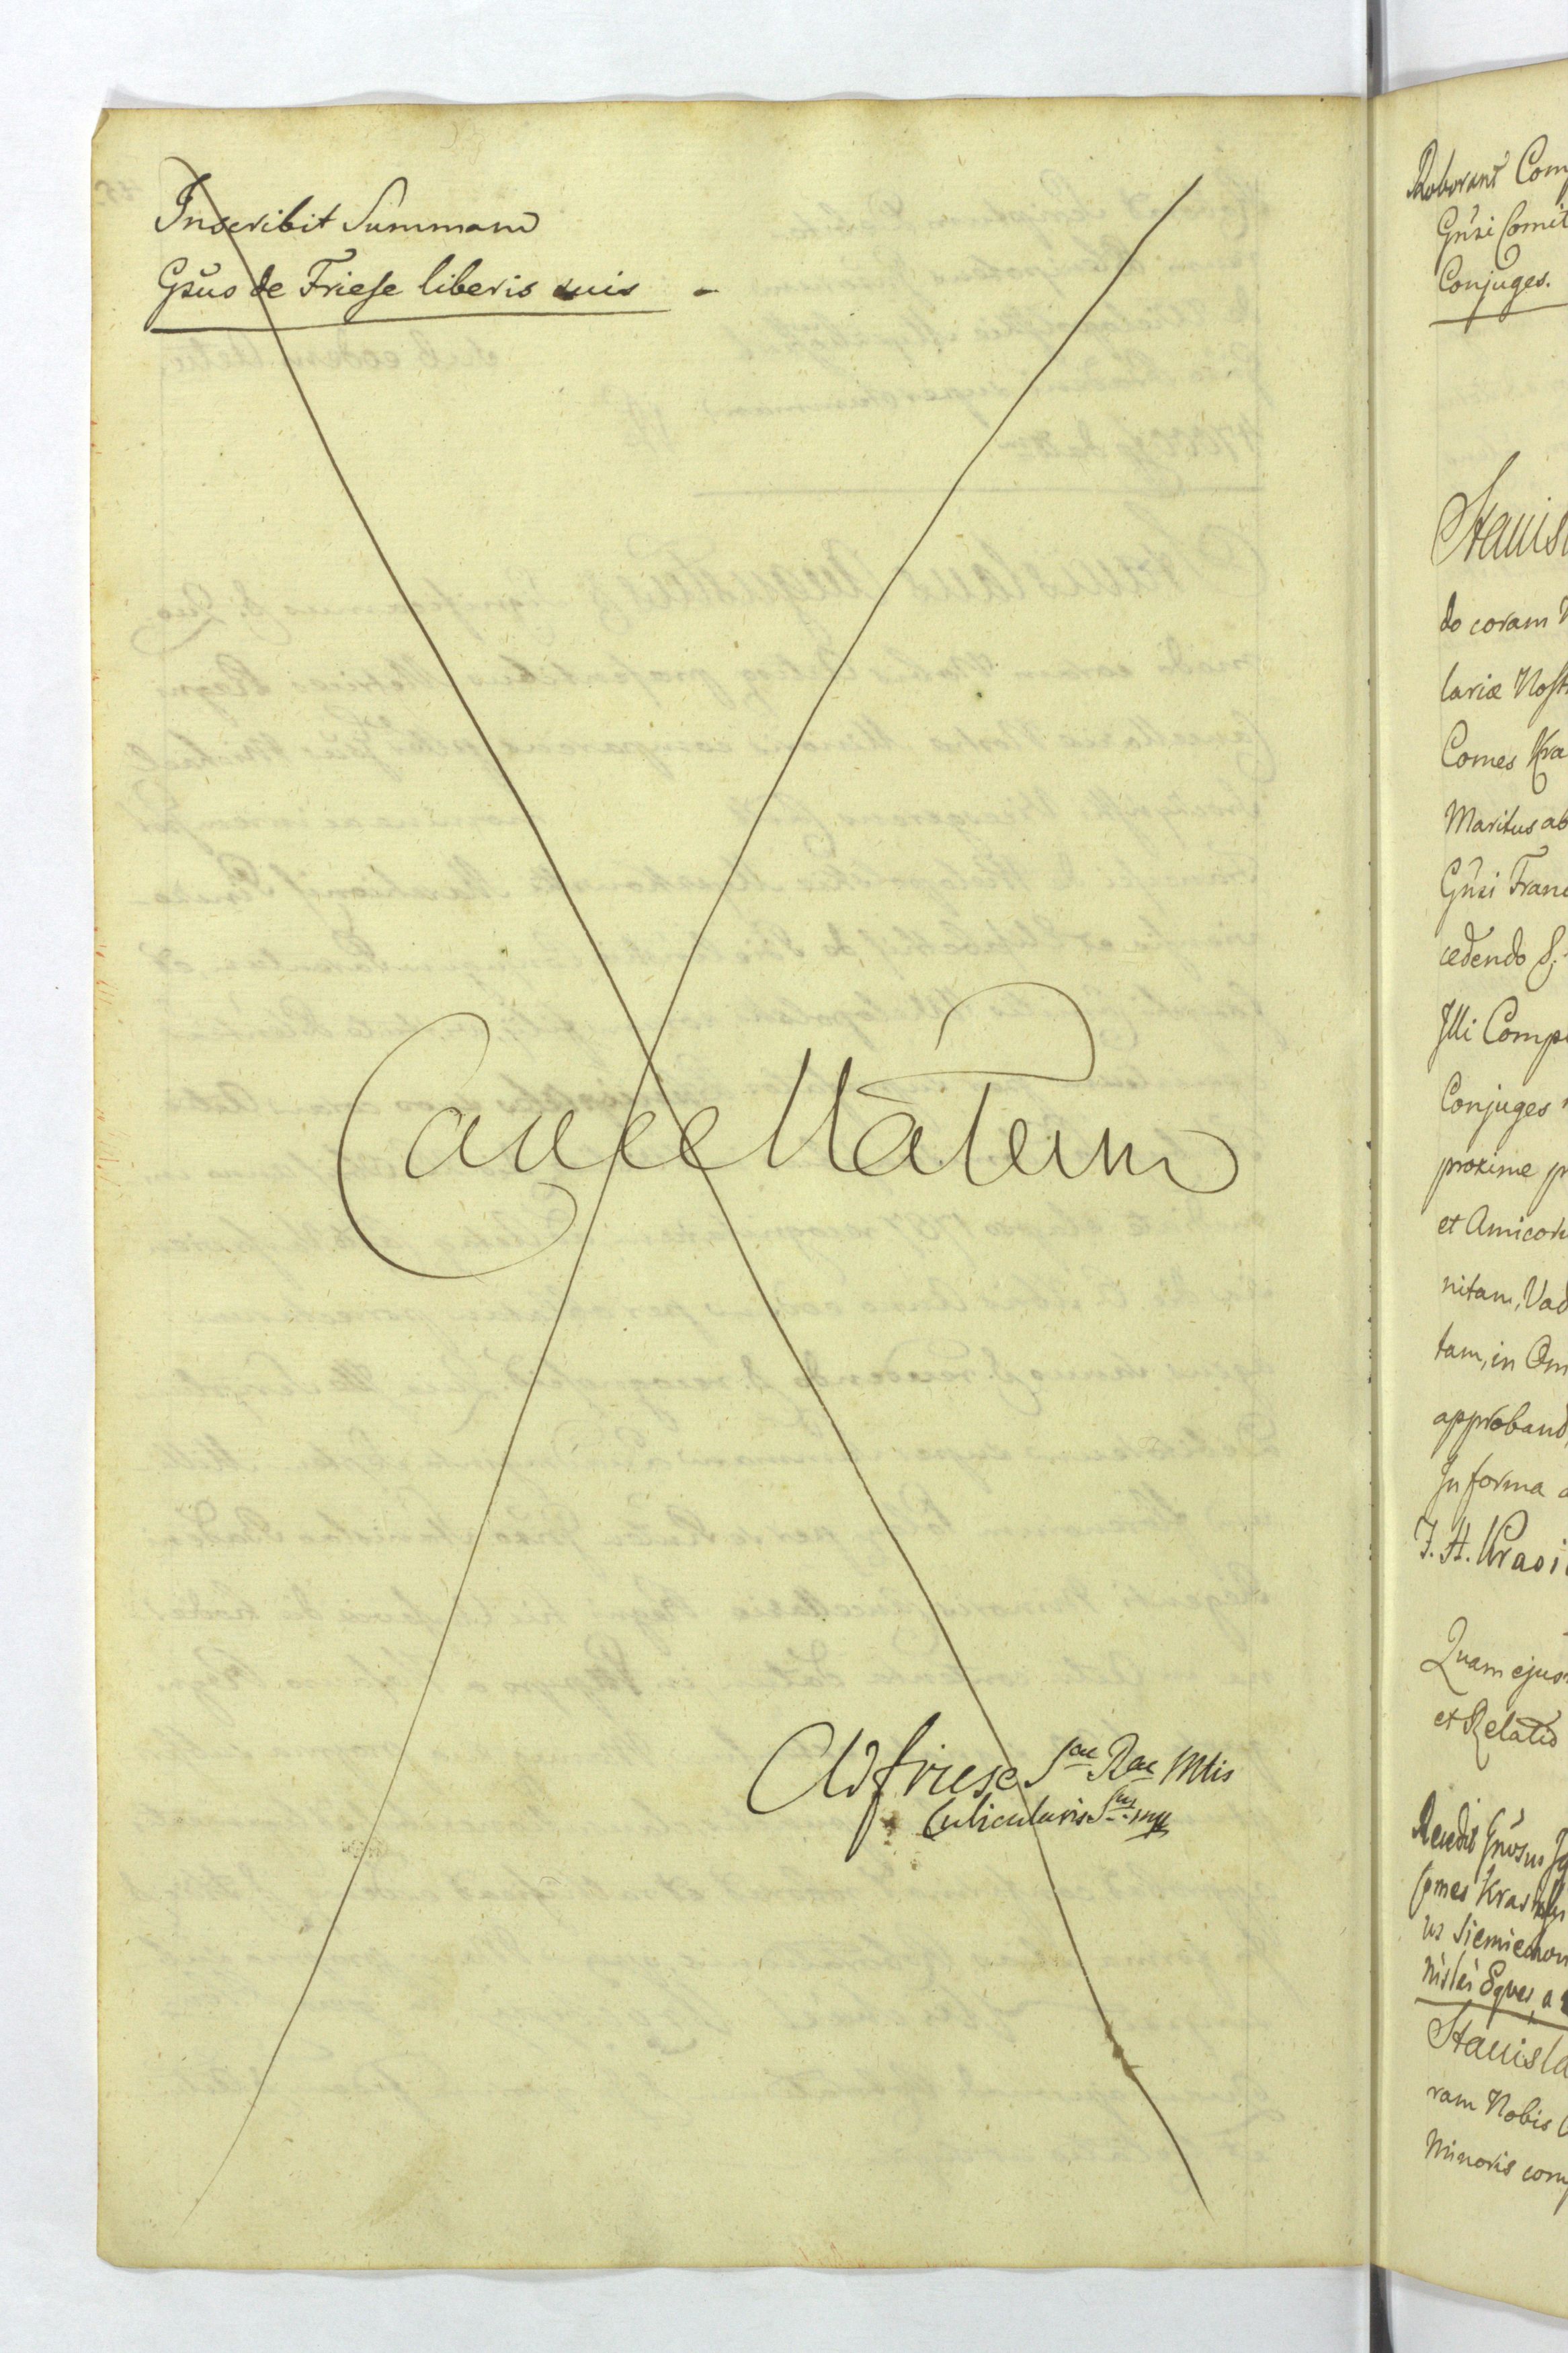 Inscribit Summam
Gsus de Friese liberis suis -
Cancellatum
Friese Sae Rae Mtis
Cubicularis
Roborant Com
Gnsi Comit
Conjuges.
Stanis
do coram N
lariæ Nost
Comes Kra
Maritus ab
Gnsi Franc
cedendo S.
Illi Comp
Conjuges
proxime p
et Amicor
nitam, Vad
tam, in Om
approband
In forma
I. H. Krasi
Quam ejus
et Relatio
Gnosus Ig
Comes Krasi
us Siemiechow
nislai Eques, a
Stanisla
ram Nobis
Minoris com